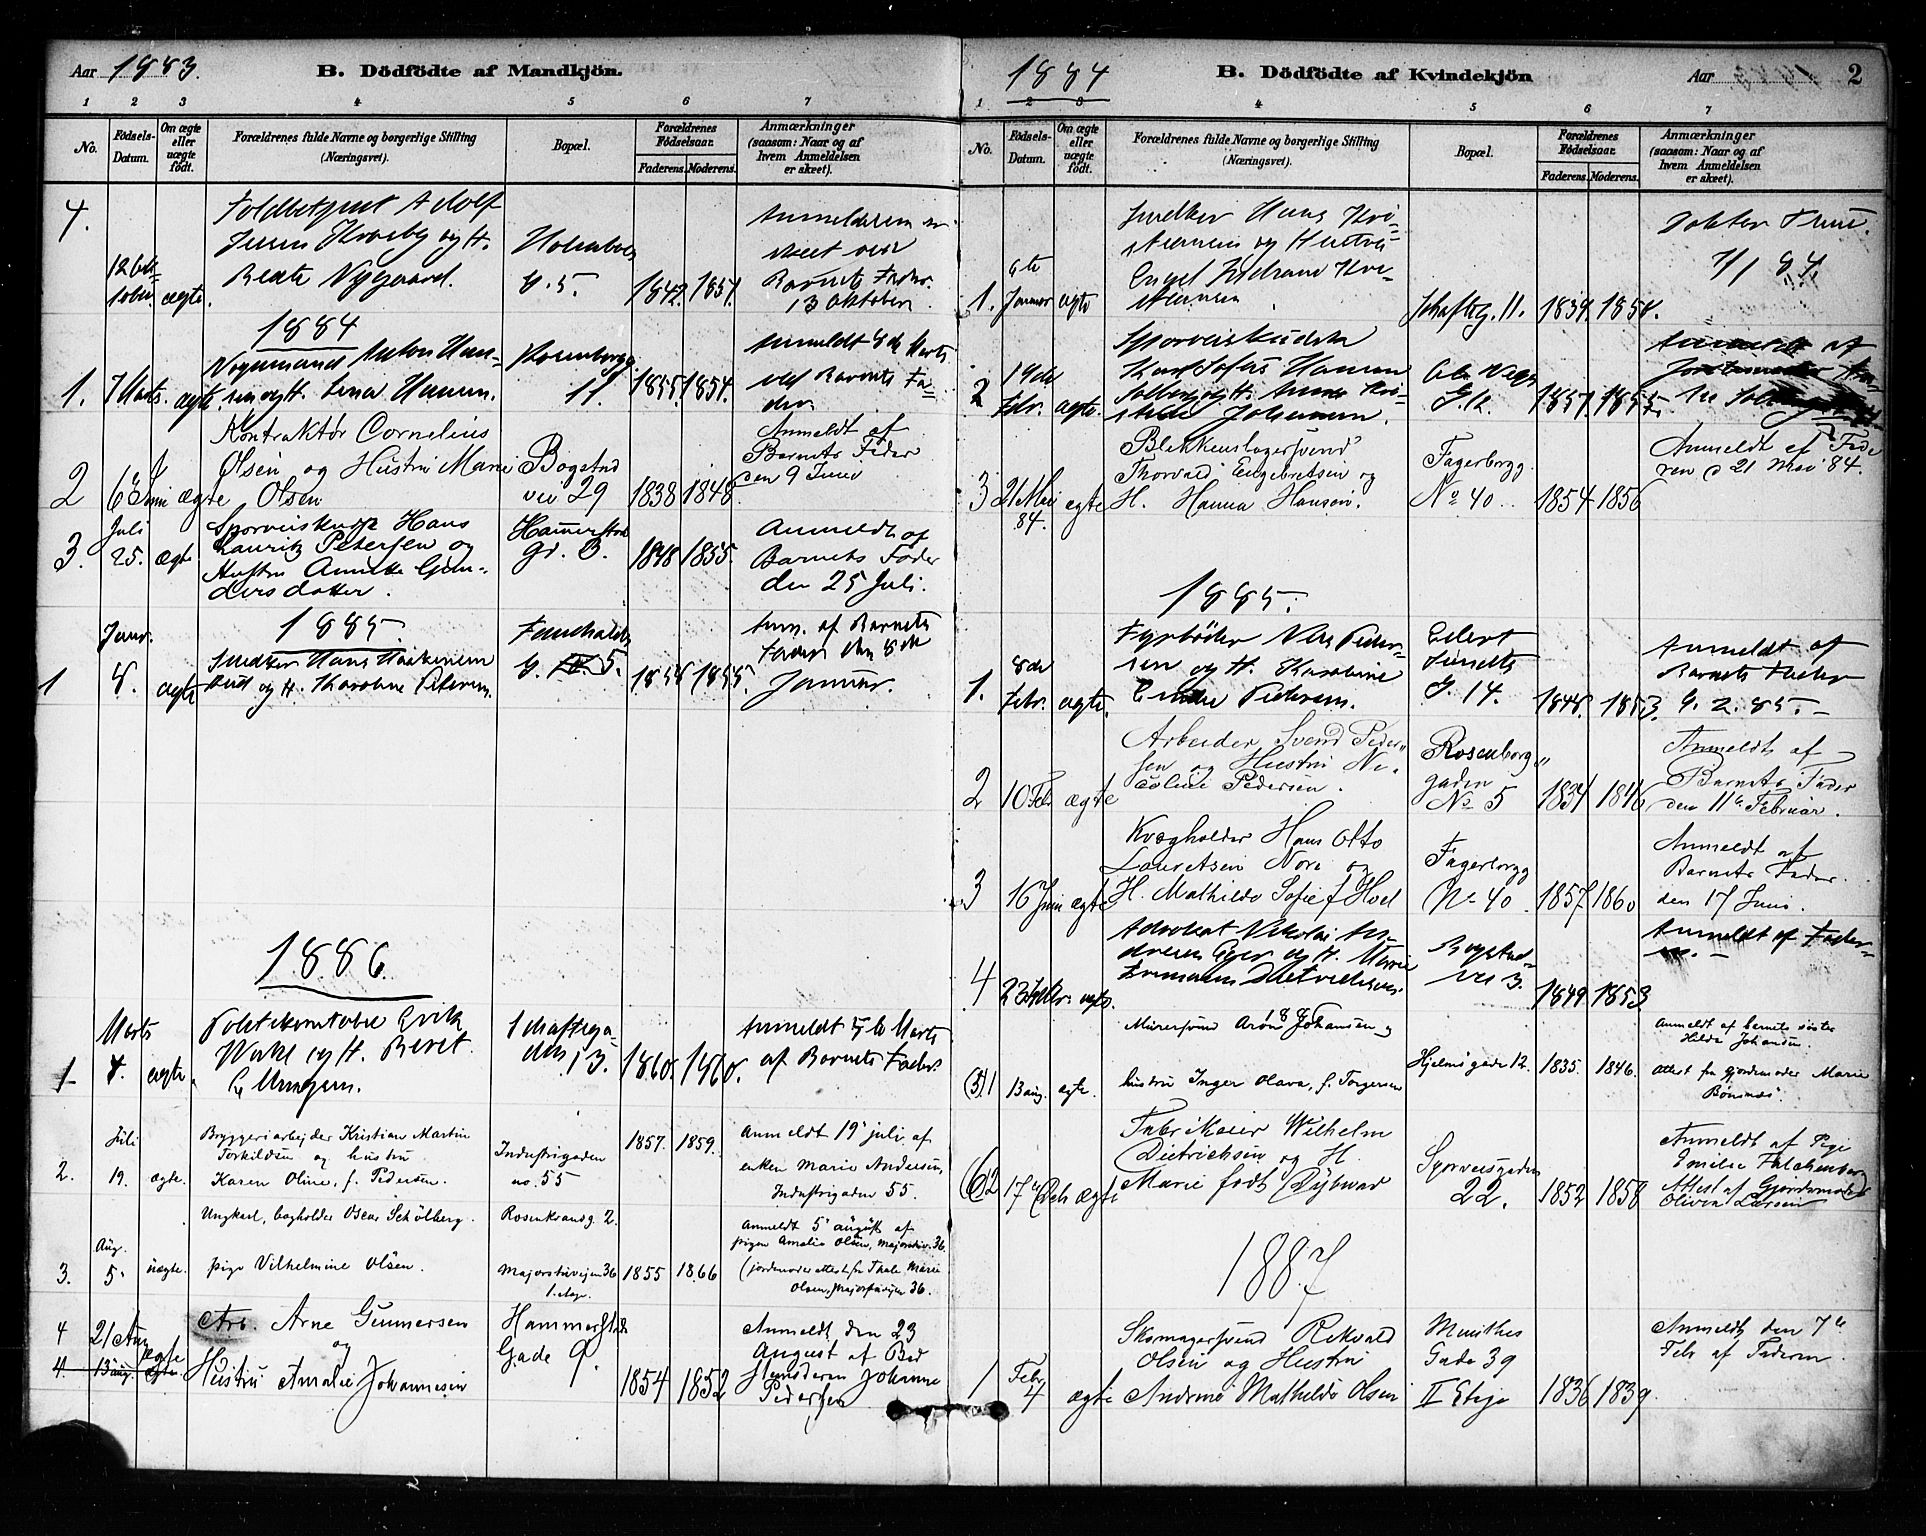 Aar 1883. B. Dödfödte af Mandkjön.
1 2 3 4 5 6 7
No.
Födsels-
Datum.
Om ægte
eller
uægte
födt.
Forældrenes fulde Navne og borgerlige Stilling
(Næringsvei).
Bopæl.
Forældrenes
Födselsaar.
Faderens. Moderens.
Anmærkninger
(saasom: Naar og af
hvem Anmeldelsen
er skeet).
4.
12 Ok-
tober
ægte.
Toldbetjent Adolf
Beate Nygaard.
G. 5.
1842. 1857.
skeet ved
Barnets Fader
13 Oktober.
1884
1. 7 Marts. ægte.
Vognmand Anton Han-
sen og H. Lina Hansen.
Rosenborgg.
11.
1855. 1854.
Anmeldt 8de Marts
ved Barnets Fa-
der.
2 6 Juni ægte
Kontraktör Cornelius
Olsen og Hustru Marie
Olsen
Bogstad
vei 29
1838 1848
Anmeldt af
Barnets Fader
den 9 Juni
3. Juli
25. ægte
Sporveiskudsk Hans
Lauritz Petersen og
Hustru Annette Gun-
dersdatter.
Hammerstad
gd. 3.
1848 1855.
Anmeldt af
Barnets Fader
den 25 Juli.
1885.
1 Janr.
8. ægte
Snedker Hans Haakensen
og H. Karoline Petersen
G. 5.
1855.
Anm. af Barnets
Fader den 8de
Januar.
1886.
1 Marts
4. ægte.
Politikonstabel Erik
og H. Beret
Schaftega-
den 13.
1860. 1860.
Anmeldt 5te Marts
af Barnets Fader.
2. Juli
19. ægte.
Bryggeriarbejder Kristian Martin
Torkildsen og hustru
Karen Oline, f. Pedersen.
Industrigaden
no. 55
1857. 1859.
Anmeldt 19 juli af
enken Marie Andersen,
Industrigaden 55.
3. Aug.
5. uægte.
Ungkarl, bogholder Oscar Schölberg.
pige Vilhelmine Olsen.
Rosenkrandsg. 2.
Majorstuvejen 36
1. etage.
1855 1866
Anmeldt 5 august af
pigen Amalie Olsen, Majorstuv. 36.
(jordemoderattest fra Thale Marie
Olsen, Majorstuvejen 36.
4 21 Aug ægte
4. 13 aug. ægte.
Arb. Arne Gunnersen
og
Hustru Amalie Johannesen
Hammerstads
Gade 9.
1854 1852
Anmeldt den 23
August af Bed
Johanne
Pedersen
1884 B. Dödfödte af Kvindekjön Aar 2
1 2 3 4 5 6 7
No.
Födsels-
Datum.
Om ægte
eller
uægte
födt.
Forældrenes fulde Navne og borgerlige Stilling
(Næringsvei).
Bopæl.
Forældrenes
Födselsaar.
Faderens. Moderens.
Anmærkninger
(saasom: Naar og af
hvem Anmeldelsen
er skeet).
1. 6te
Januar ægte
Snedker Hans Kri-
stiansen og Hustru
Kri-
stiansen
Schafteg. 11.
1839. 1854.
Doktor Thue.
7/1 84.
2 19de
Febr. ægte.
Sporveiskudsk
Karl Hansen
Solberg og H. Anna Kri-
stine Johansen.
G. 12.
1857. 1855.
Anmeldt af
3 21 Mai
84. ægte
Blikkenslagersvend
Thorvald Engebretsen og
H. Hanna Hansen.
Fagerborgg
No 40
1854. 1856
Anmeldt af Fade
ren d 21 Mai 84.
1885.
1. 8de
Febr. ægte.
Fyrböder Nils Peder-
sen og H. Karoline
Pedersen.
Eilert
Sundts
G. 14.
1848. 1853.
Anmeldt af
Barnets Fader
9. 2. 85.
2 10 Feb ægte
Arbeider Svend Peder-
sen og Hustru Ni-
coline Pedersen.
Rosenborg
gaden
No 5
1834 1846
Anmeldt af
Barnets Fader
den 11te Februar.
3 16 Juni ægte
Kvægholder Hans Otto
Lauretsen Nore og
H. Mathilde Sofie f Hoel
Fagerborgg
No 40
1857 1860
Anmeldt af
Barnets Fader
den 17 Juni.
4 ægte.
Advokat Nikolai An-
dresen Eger og H. Marie
Bogstad-
vei 3.
1849. 1853
Anmeldt af Fader-
en.
(5) 1 13 aug. ægte.
Murersvend Aron Johansen og
hustru Inger Olava, f. Torgersen
Hjelmsgade 12.
1835. 1846.
Anmeldt af barnets söster
Hilda Johansen.
Attest fra Gjordemoder Marie
Bönsnæs.
(6) 2 17 Octb ægte
Fabrikeier Wilhelm
Dietrichsen og H.
Marie född Dybwad
Sporveisgaden
22.
1852 1858
Anmeldt af Pige
Emilie Falchenberg
Attest af Gjordemoder
Oliven Larsen
1887
1 Febr
4 ægte
Skomagersvend Rikvald
Olsen og Hustru
Andrine Mathilde Olsen
Munthes
Gade 39
II Etage
1836 1839
Anmeldt den 7de
Feb af Faderen.